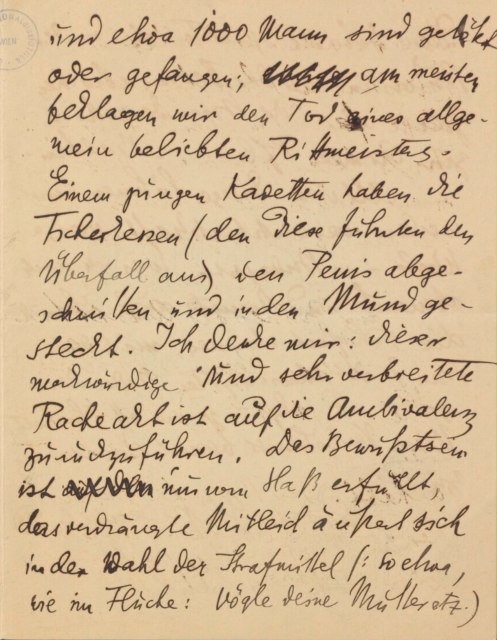 WIEN
und etwa 1000 Mann sind getötet
oder gefangen; am meisten
beklagen wir den Tod eines allge-
mein beliebten Rittmeisters.
Einem jungen Kadetten haben die
Tscherkessen (denn diese führten den
Überfall aus) den Penis abge-
schnitten und in den Mund ge-
steckt. Ich denke mir: dieser
merkwürdige und sehr verbreitete
Racheakt ist auf die Ambivalenz
zurückzuführen. Das Bewußtsein
ist nur vom Haß erfüllt,
das verdrängte Mitleid äußert sich
in der Wahl der Strafmittel (: so etwa,
wie im Fluche: vögle deine Mutter etz.)